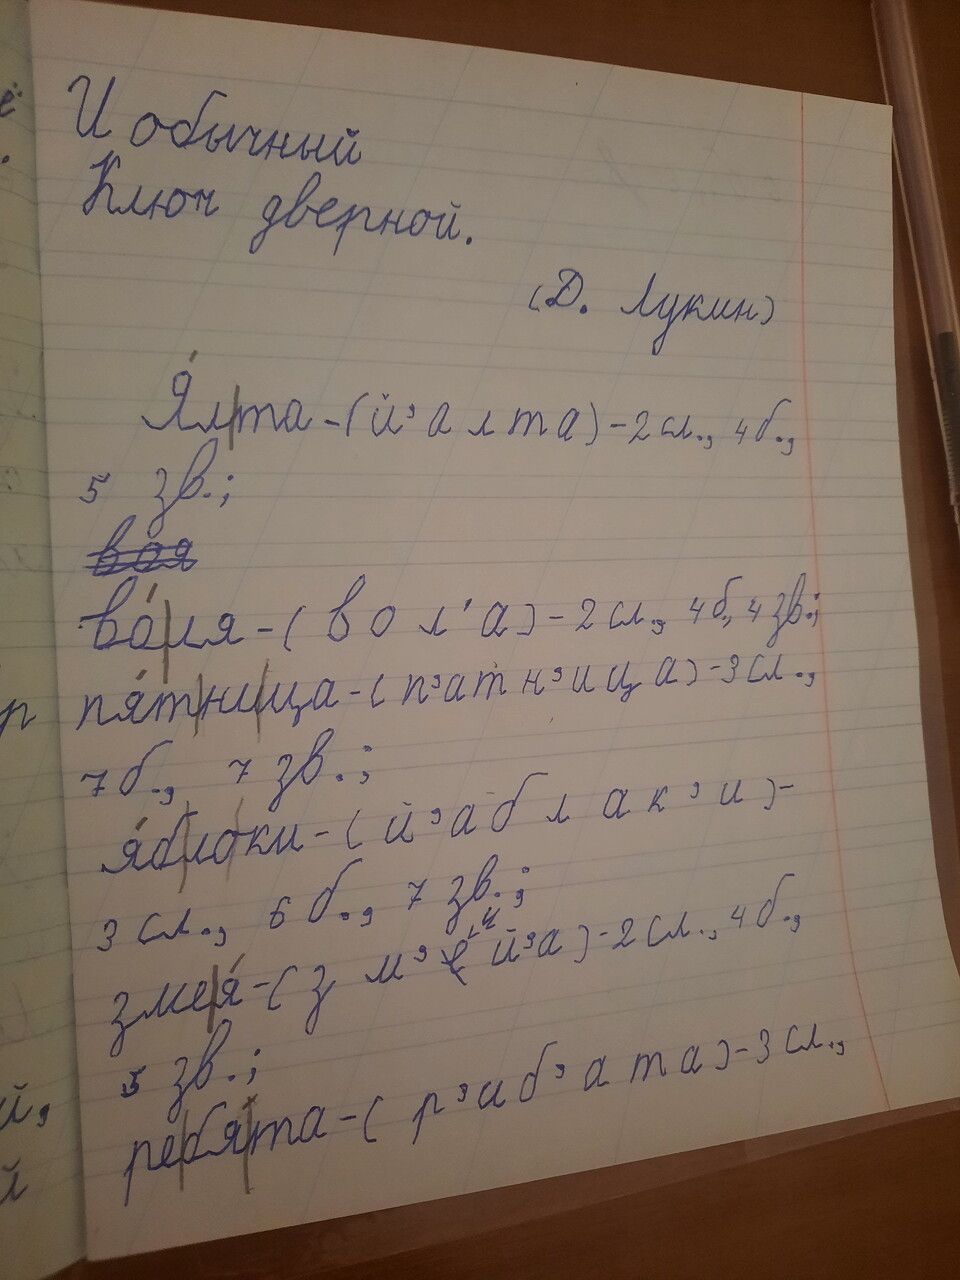 И обычный
Ключ дверной.
(Д. Лукин)
Я́л|та-(й'алта)-2 сл., 4 б.,
5 зв.;
воя
во́|ля-(вол'а)-2 сл., 4 б., 4 зв.;
пя́т|ни|ца-(п'атн'ица)-3 сл.,
7 б., 7 зв.;
я́б|ло|ки-(й'аблак'и)-
3 сл., 6 б., 7 зв.;
зме|я́-(зм'ий'а)-2 сл., 4 б.,
5 зв.;
ре|бя́|та-(р'иб'ата)-3 сл.,